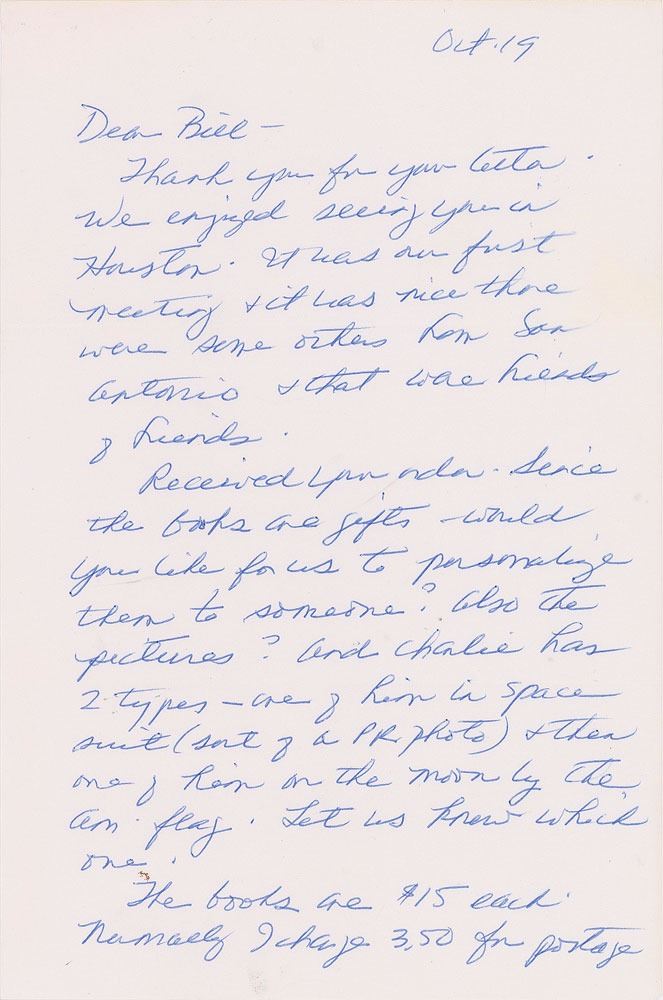 Oct. 19
Dear Bill –
Thank you for your letter.
We enjoyed seeing you in
Houston. It was our first
meeting & it was nice there
were some others from San
Antonio & that were friends
of friends.
Received your order. Since
the books are gifts – would
you like for us to personalize
them to someone? Also the
pictures? And Charlie has
2 types – one of him in space
suit (sort of a PR photo) & then
one of him on the moon by the
Am. flag. Let us know which
one.
The books are $15 each.
Normally I charge 3.50 for postage